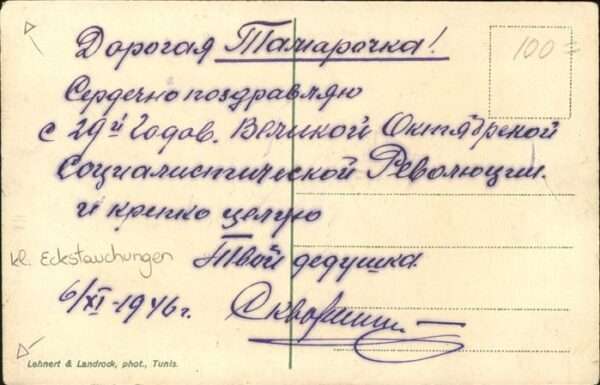 100=
Дорогая Тамарочка!
Сердечно поздравляю
с 29й Годов. Великой Октябрьской
Социалистической Революции.
и крепко целую
Твой дедушка.
kl. Eckstauchungen
6/XI-1946г.
Lehnert & Landrock, phot., Tunis.